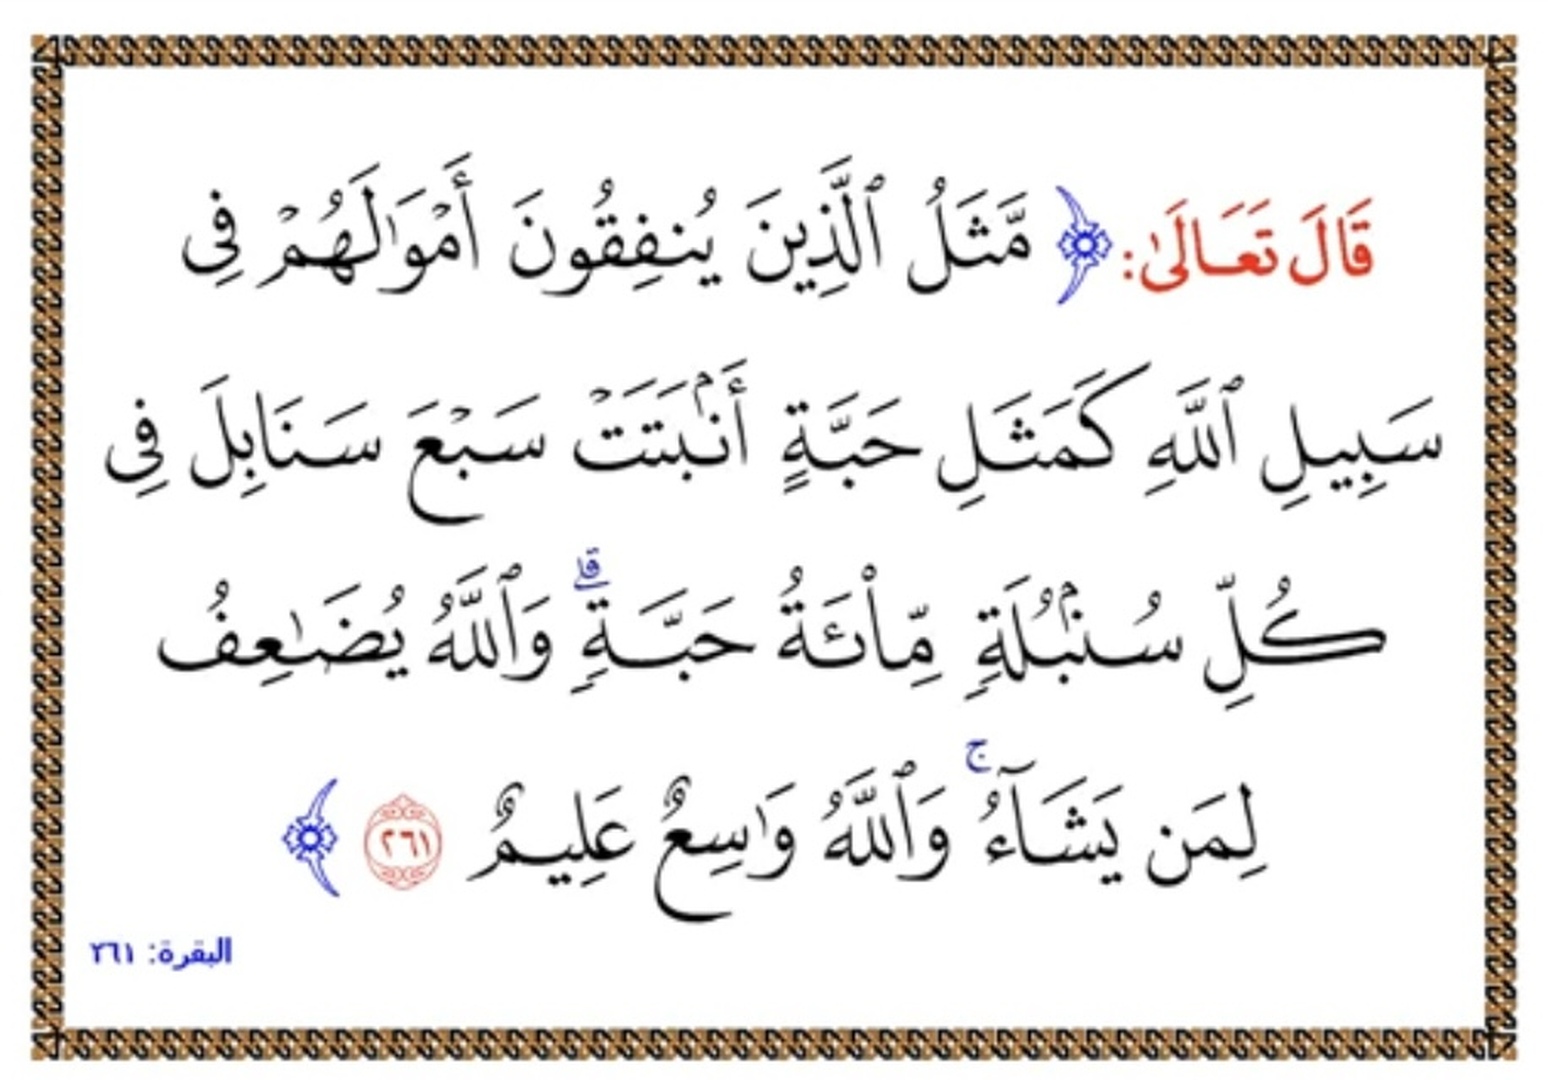 قَالَ تَعَالَىٰ: ﴿ مَّثَلُ ٱلَّذِينَ يُنفِقُونَ أَمۡوَٰلَهُمۡ فِي
سَبِيلِ ٱللَّهِ كَمَثَلِ حَبَّةٍ أَنۢبَتَتۡ سَبۡعَ سَنَابِلَ فِي
كُلِّ سُنۢبُلَةٖ مِّاْئَةُ حَبَّةٖۗ وَٱللَّهُ يُضَٰعِفُ
لِمَن يَشَآءُۚ وَٱللَّهُ وَٰسِعٌ عَلِيمٌ ٢٦١ ﴾
البقرة: ٢٦١